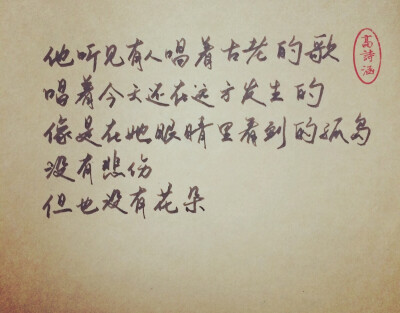 他听见有人唱着古老的歌
唱着今天还在远方发生的
像是在她眼睛里看到的孤岛
没有悲伤
但也没有花朵
高詩涵